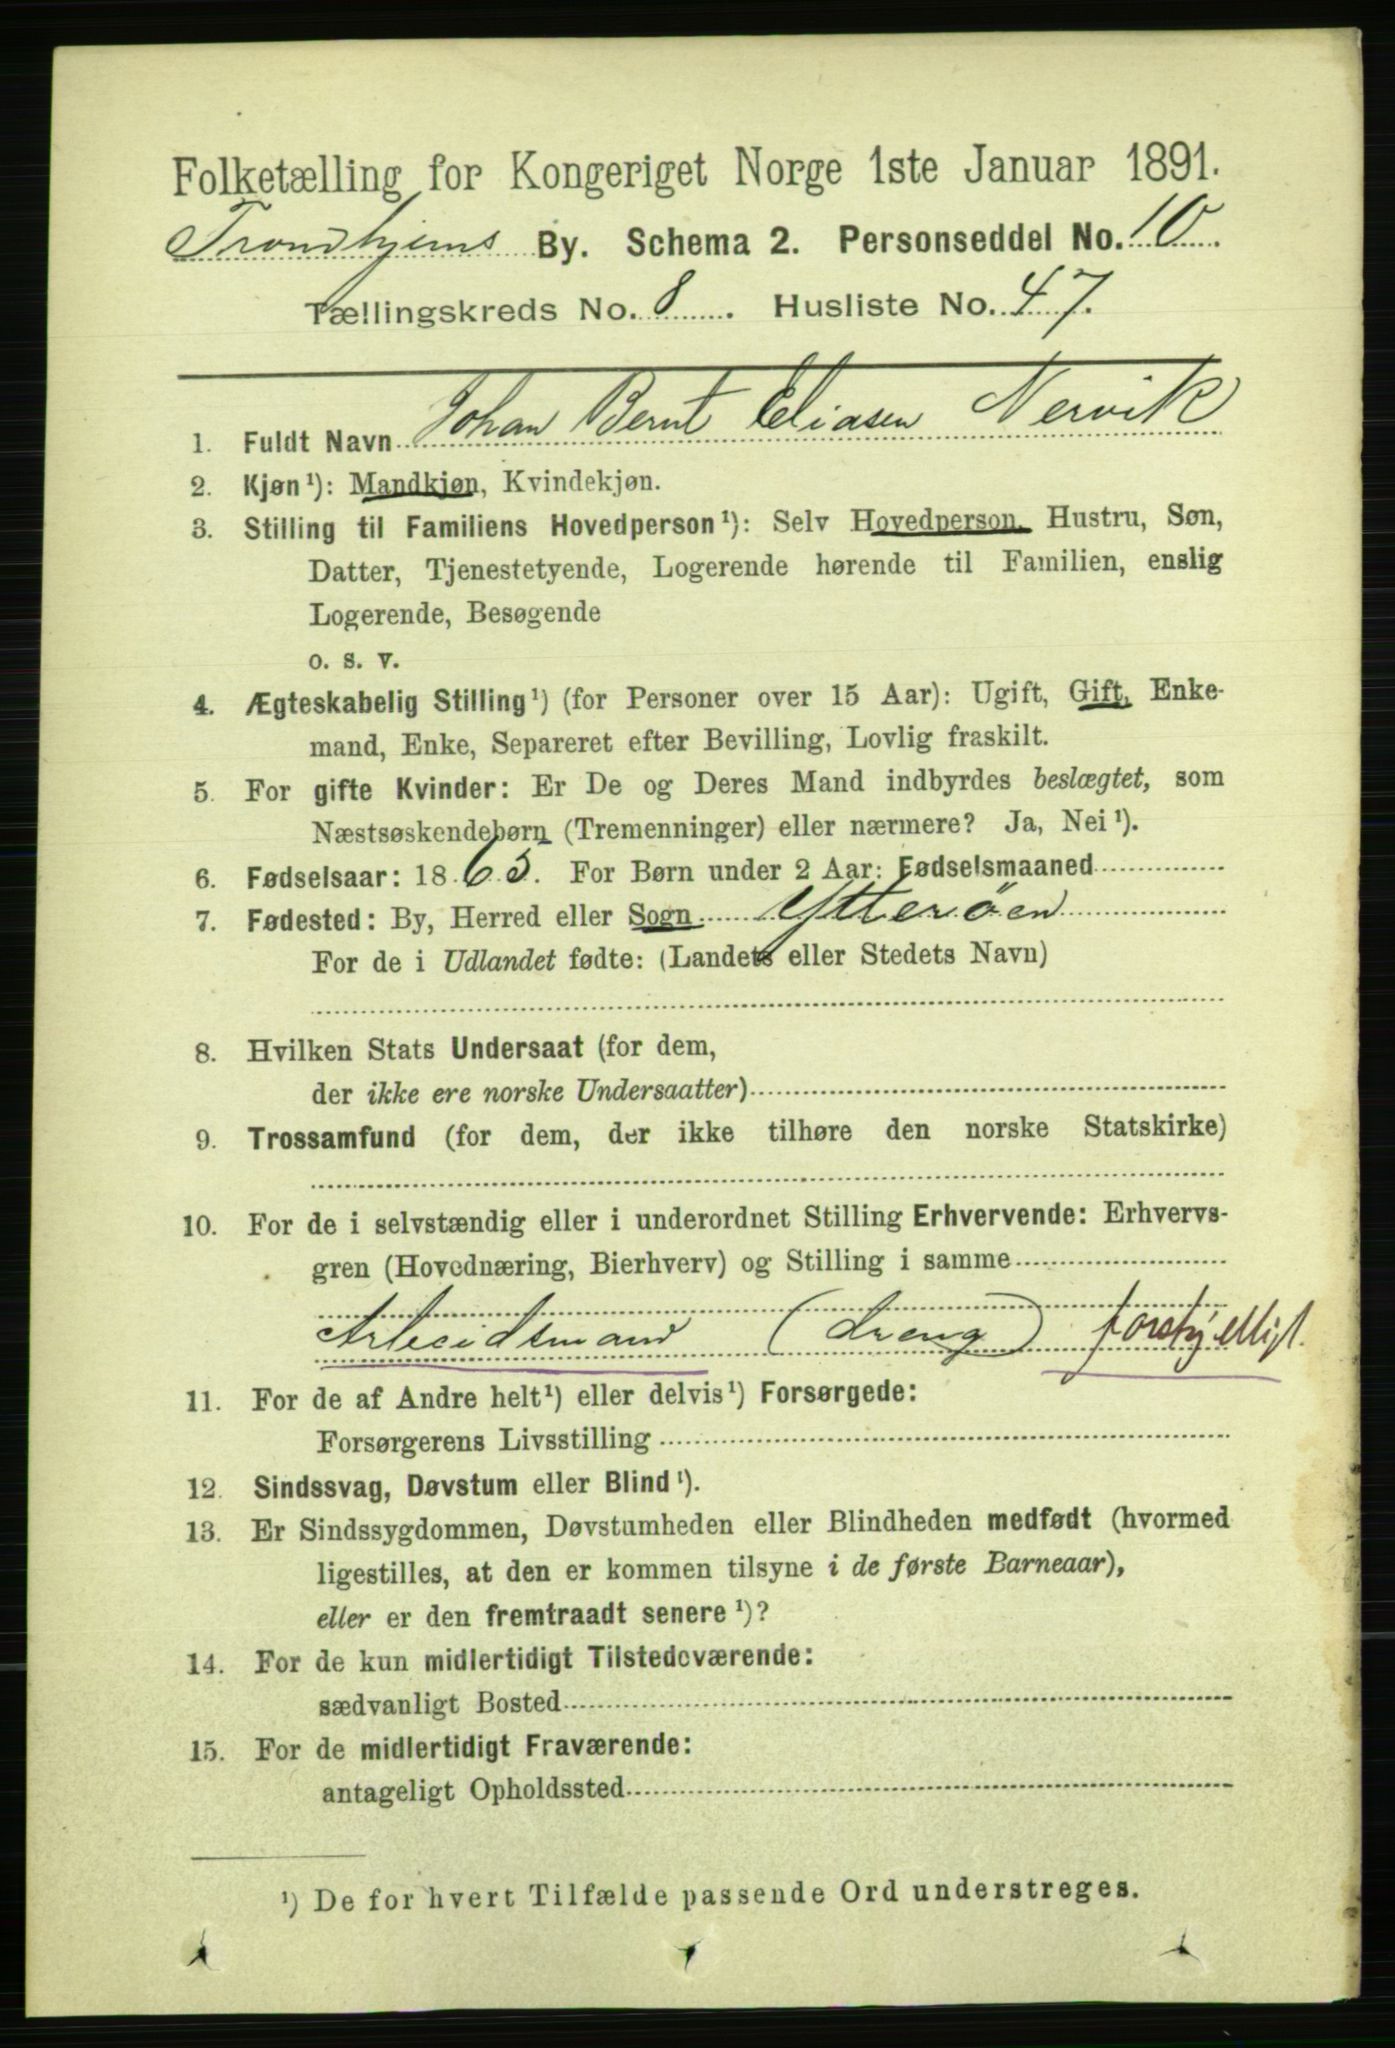 Folketælling for Kongeriget Norge 1ste Januar 1891.
Trondhjems By. Schema 2. Personseddel No. 10
Tællingskreds No. 8. Husliste No. 47.
1. Fuldt Navn Johan Bernt Eliasen Nervik
2. Kjøn¹): Mandkjøn, Kvindekjøn.
3. Stilling til Familiens Hovedperson¹): Selv Hovedperson, Hustru, Søn,
Datter, Tjenestetyende, Logerende hørende til Familien, enslig
Logerende, Besøgende
o. s. v.
4. Ægteskabelig Stilling¹) (for Personer over 15 Aar): Ugift, Gift, Enke-
mand, Enke, Separeret efter Bevilling, Lovlig fraskilt.
5. For gifte Kvinder: Er De og Deres Mand indbyrdes beslægtet, som
Næstsøskendebørn (Tremenninger) eller nærmere? Ja, Nei¹).
6. Fødselsaar: 1863. For Børn under 2 Aar: Fødselsmaaned
7. Fødested: By, Herred eller Sogn Ytterøen
For de i Udlandet fødte: (Landets eller Stedets Navn)
8. Hvilken Stats Undersaat (for dem,
der ikke ere norske Undersaatter)
9. Trossamfund (for dem, der ikke tilhøre den norske Statskirke)
10. For de i selvstændig eller i underordnet Stilling Erhvervende: Erhvervs-
gren (Hovednæring, Bierhverv) og Stilling i samme
Arbeidsmand (dreng) forskjelligt.
11. For de af Andre helt¹) eller delvis¹) Forsørgede:
Forsørgerens Livsstilling
12. Sindssvag, Døvstum eller Blind¹).
13. Er Sindssygdommen, Døvstumheden eller Blindheden medfødt (hvormed
ligestilles, at den er kommen tilsyne i de første Barneaar),
eller er den fremtraadt senere¹)?
14. For de kun midlertidigt Tilstedeværende:
sædvanligt Bosted
15. For de midlertidigt Fraværende:
antageligt Opholdssted
¹) De for hvert Tilfælde passende Ord understreges.